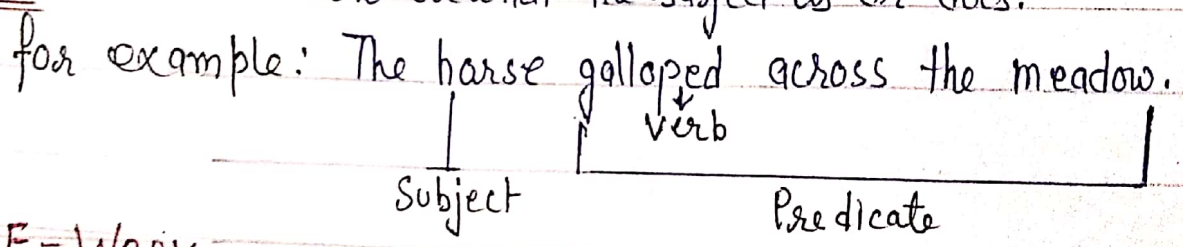 for example: The horse galloped across the meadow.
verb
Subject
Predicate